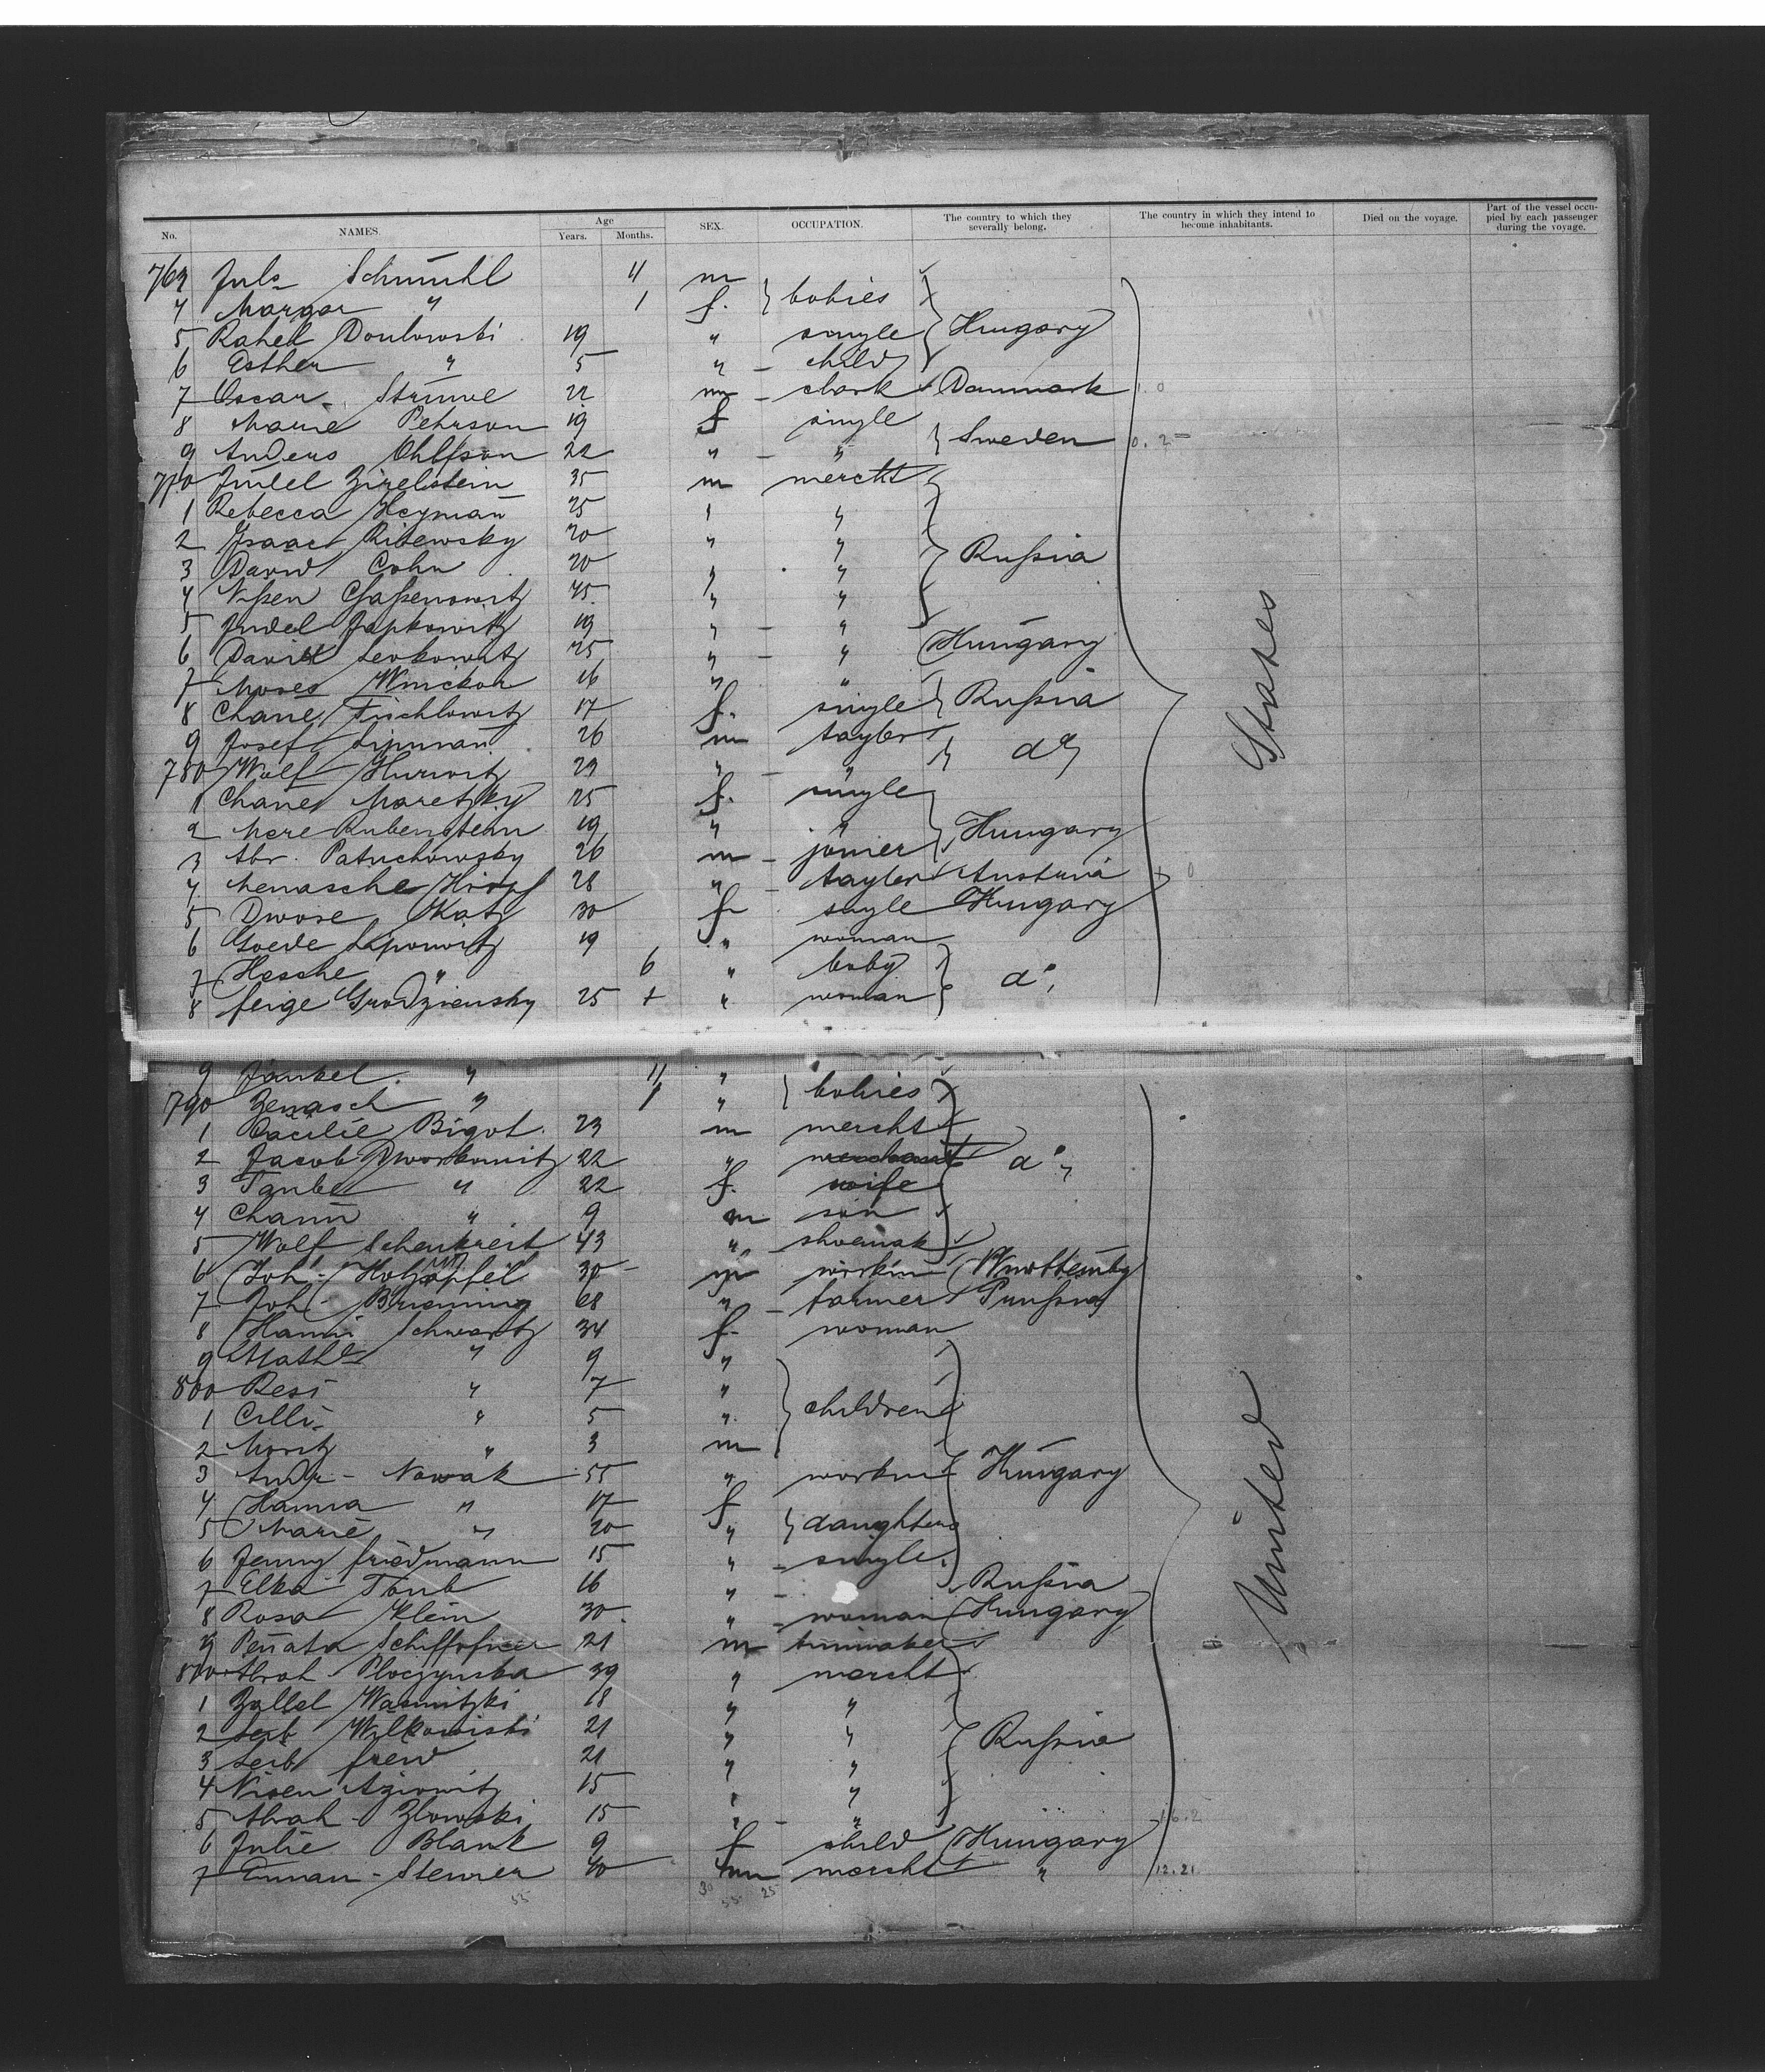 No. NAMES. Age Years. Months. SEX. OCCUPATION. The country to which they severally belong. The country in which they intend to become inhabitants. Died on the voyage. Part of the vessel occupied by each passenger during the voyage.
763 Juls Schmuhl 11 m
4 Margar " 1 f. } babies
5 Rahel 19 " single } Hungary
6 Esther " 5 " - child
7 Oscar Strüwe 22 m - clark Danmark
8 Marie Pehrson 19 f single
9 Anders Ohlfson 22 " - " } Sweden
770 Judel Zirelstein 35 m mercht
1 Rebecca Heyman 25 " "
2 Isaac Ritewsky 20 " "
3 David Cohn 20 " " } Rußia
4 Nißen 45 " "
5 Judel Japkowitz 19 " - "
6 David Levkowitz 25 " - " Hungary
7 Moses 16 " "
8 Chane 17 f. single } Rußia
9 Josef Lipman 26 m tayler
780 Wolf Hurwitz 23 " - " } do
1 Chane Maretzky 25 f. single
2 Mere Rubenstein 19 " " } Hungary
3 Abr. Patuchowsky 26 m - joiner
4 Menasche 28 " - tayler Austria
5 Dwose Katz 30 f single Hungary
6 Goede Lipowitz 19 " woman
7 Hesche " 6 " baby } do
8 feige Grodziensky 25 + " woman
States
9 Jankel " 11 "
790 Zenasch " 1 " } babies
1 Cacilie Bigot 23 m mercht
2 Jacob Dworkowitz 22 " merchant } do
3 Taube " 22 f. wife
4 Chann " 9 m son
5 Wolf Schenkreit 43 " shoemak
6 Joh. Holzapfel 30 m workm Württembg
7 Joh. Bruening 68 " - farmer Prußia
8 Hanni Schwartz 34 f. woman
9 Math " 9 "
800 Resi " 7 "
1 Cilli " 5 " } children
2 Moritz " 3 m
3 Andr - Nowak 55 " workm } Hungary
4 Hanna " 17 f
5 Marie " 20 " } daughters
6 Jenny friedmann 15 " - single
7 Elka Taub 16 " - Rußia
8 Rosa Klein 30 " - woman Hungary
9 21 m
810 Abrah Ploczynska 39 " mercht
1 18 " "
2 Leib Wilkowiski 21 " " } Rußia
3 Leib 21 " "
4 Nisen 15 " "
5 Abrah - Zlowski 15 " - "
6 Julie Blank 9 f child Hungary
7 40 m mercht "
12.21
United